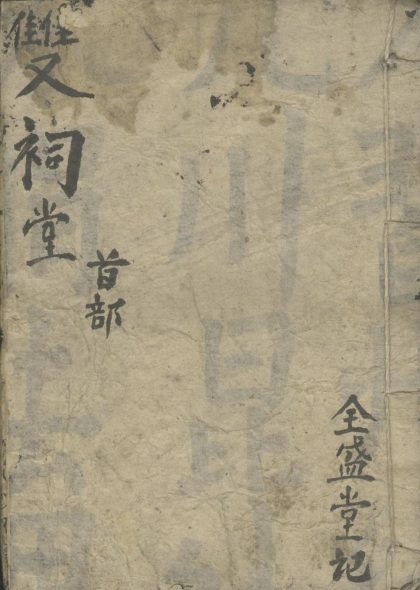 雙祠堂
首部
全盛堂記